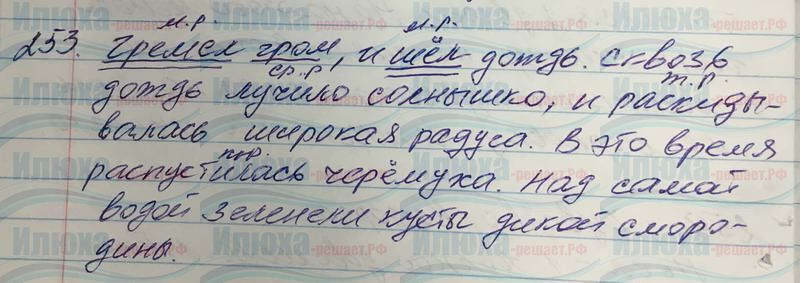 м.р. м.р.
253. Гремел гром, и шёл дождь. Сквозь
ср.р. ж.р.
дождь лучило солнышко, и раскиды-
валась широкая радуга. В это время
ж.р.
распустилась черёмуха. Над самой
водой зеленели кусты дикой сморо-
дины.
Илюха-решает.РФ